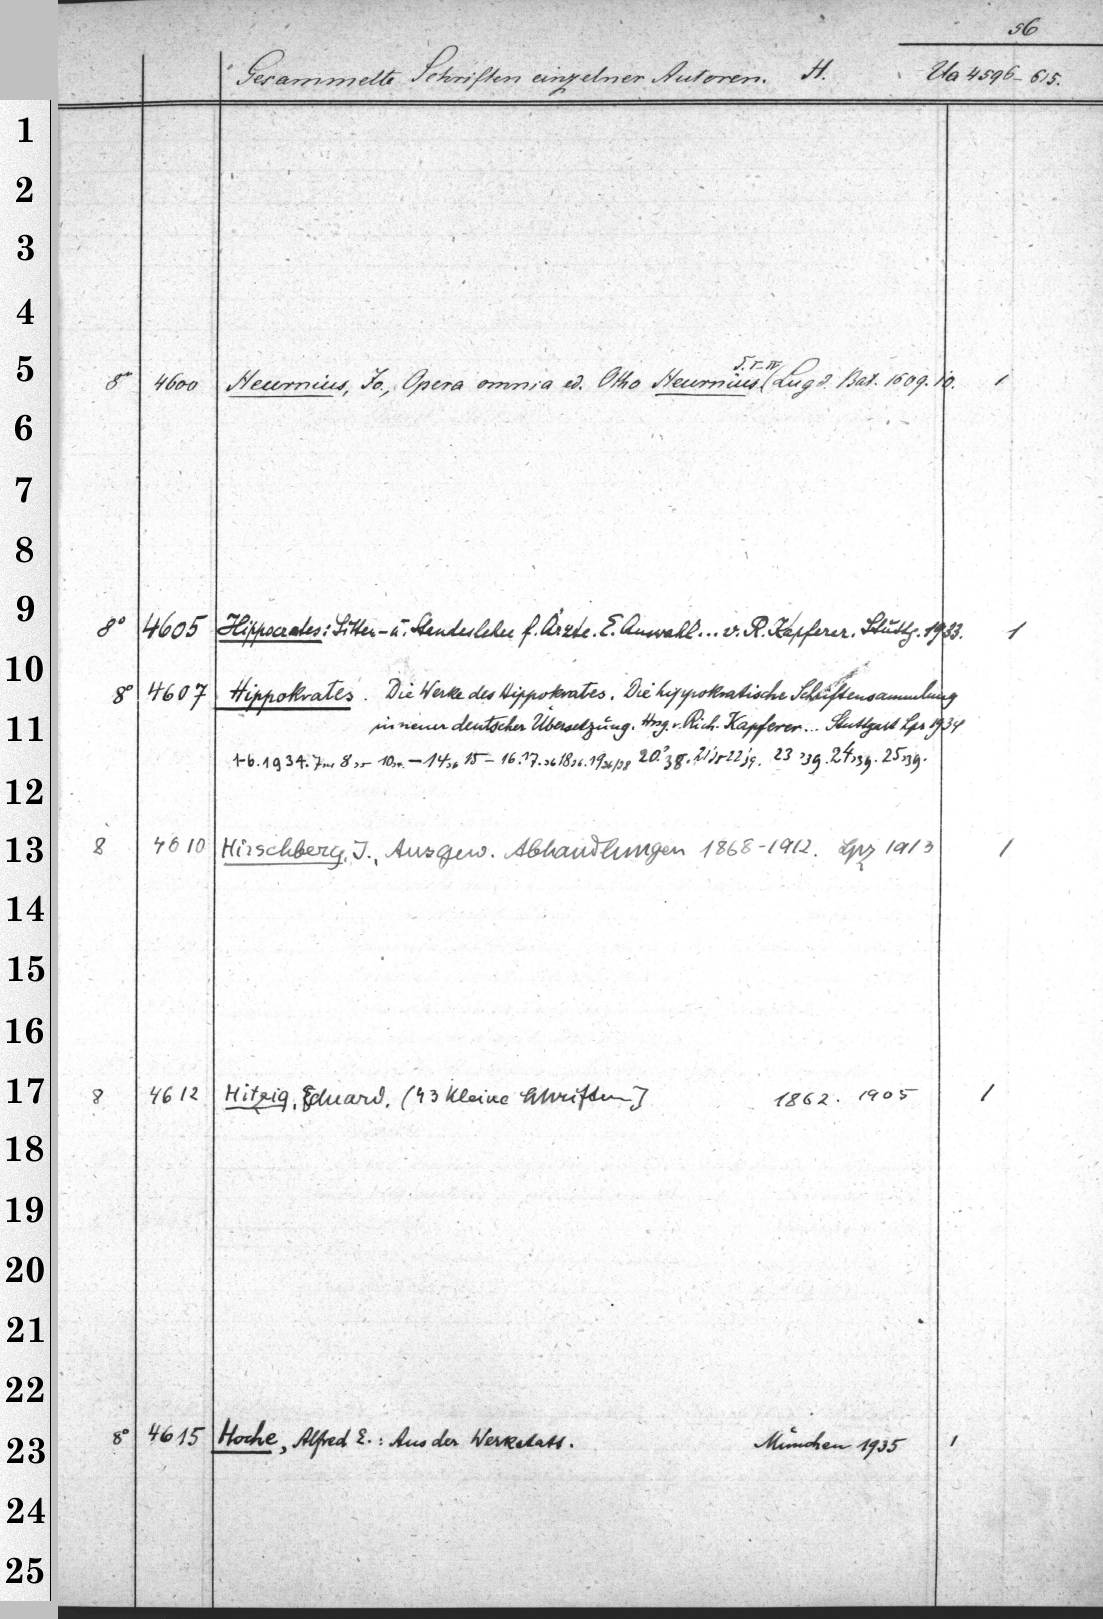 56
Gesammelte Schriften einzelner Autoren. H. Ua 4596-615.
1
2
3
4
T. I-IV
5 8° 4600 Heurnius, Jo., Opera omnia ed. Otho Heurnius. Lugd. Bat. 1609. 10. 1
6
7
8
9 8° 4605 Hippocrates: Sitten- u. Standeslehre f. Ärzte. E. Auswahl... v. R. Kapferer. Stuttg. 1933. 1
10 8° 4607 Hippokrates. Die Werke des Hippokrates. Die hippokratische Schriftensammlung
11 in neuer deutscher Übersetzung. Hrsg. v. Rich. Kapferer... Stuttgart Lpz 1934
12 1-6.1934.
13 8 4610 Hirschberg, J., Ausgew. Abhandlungen 1868-1912. Lpz 1913 1
14
15
16
17 8 4612 Hitzig, Eduard. (43 kleine Schriften] 1862. 1905 1
18
19
20
21
22
23 8° 4615 Hoche, Alfred E.: Aus der Werkstatt. München 1935 1
24
25